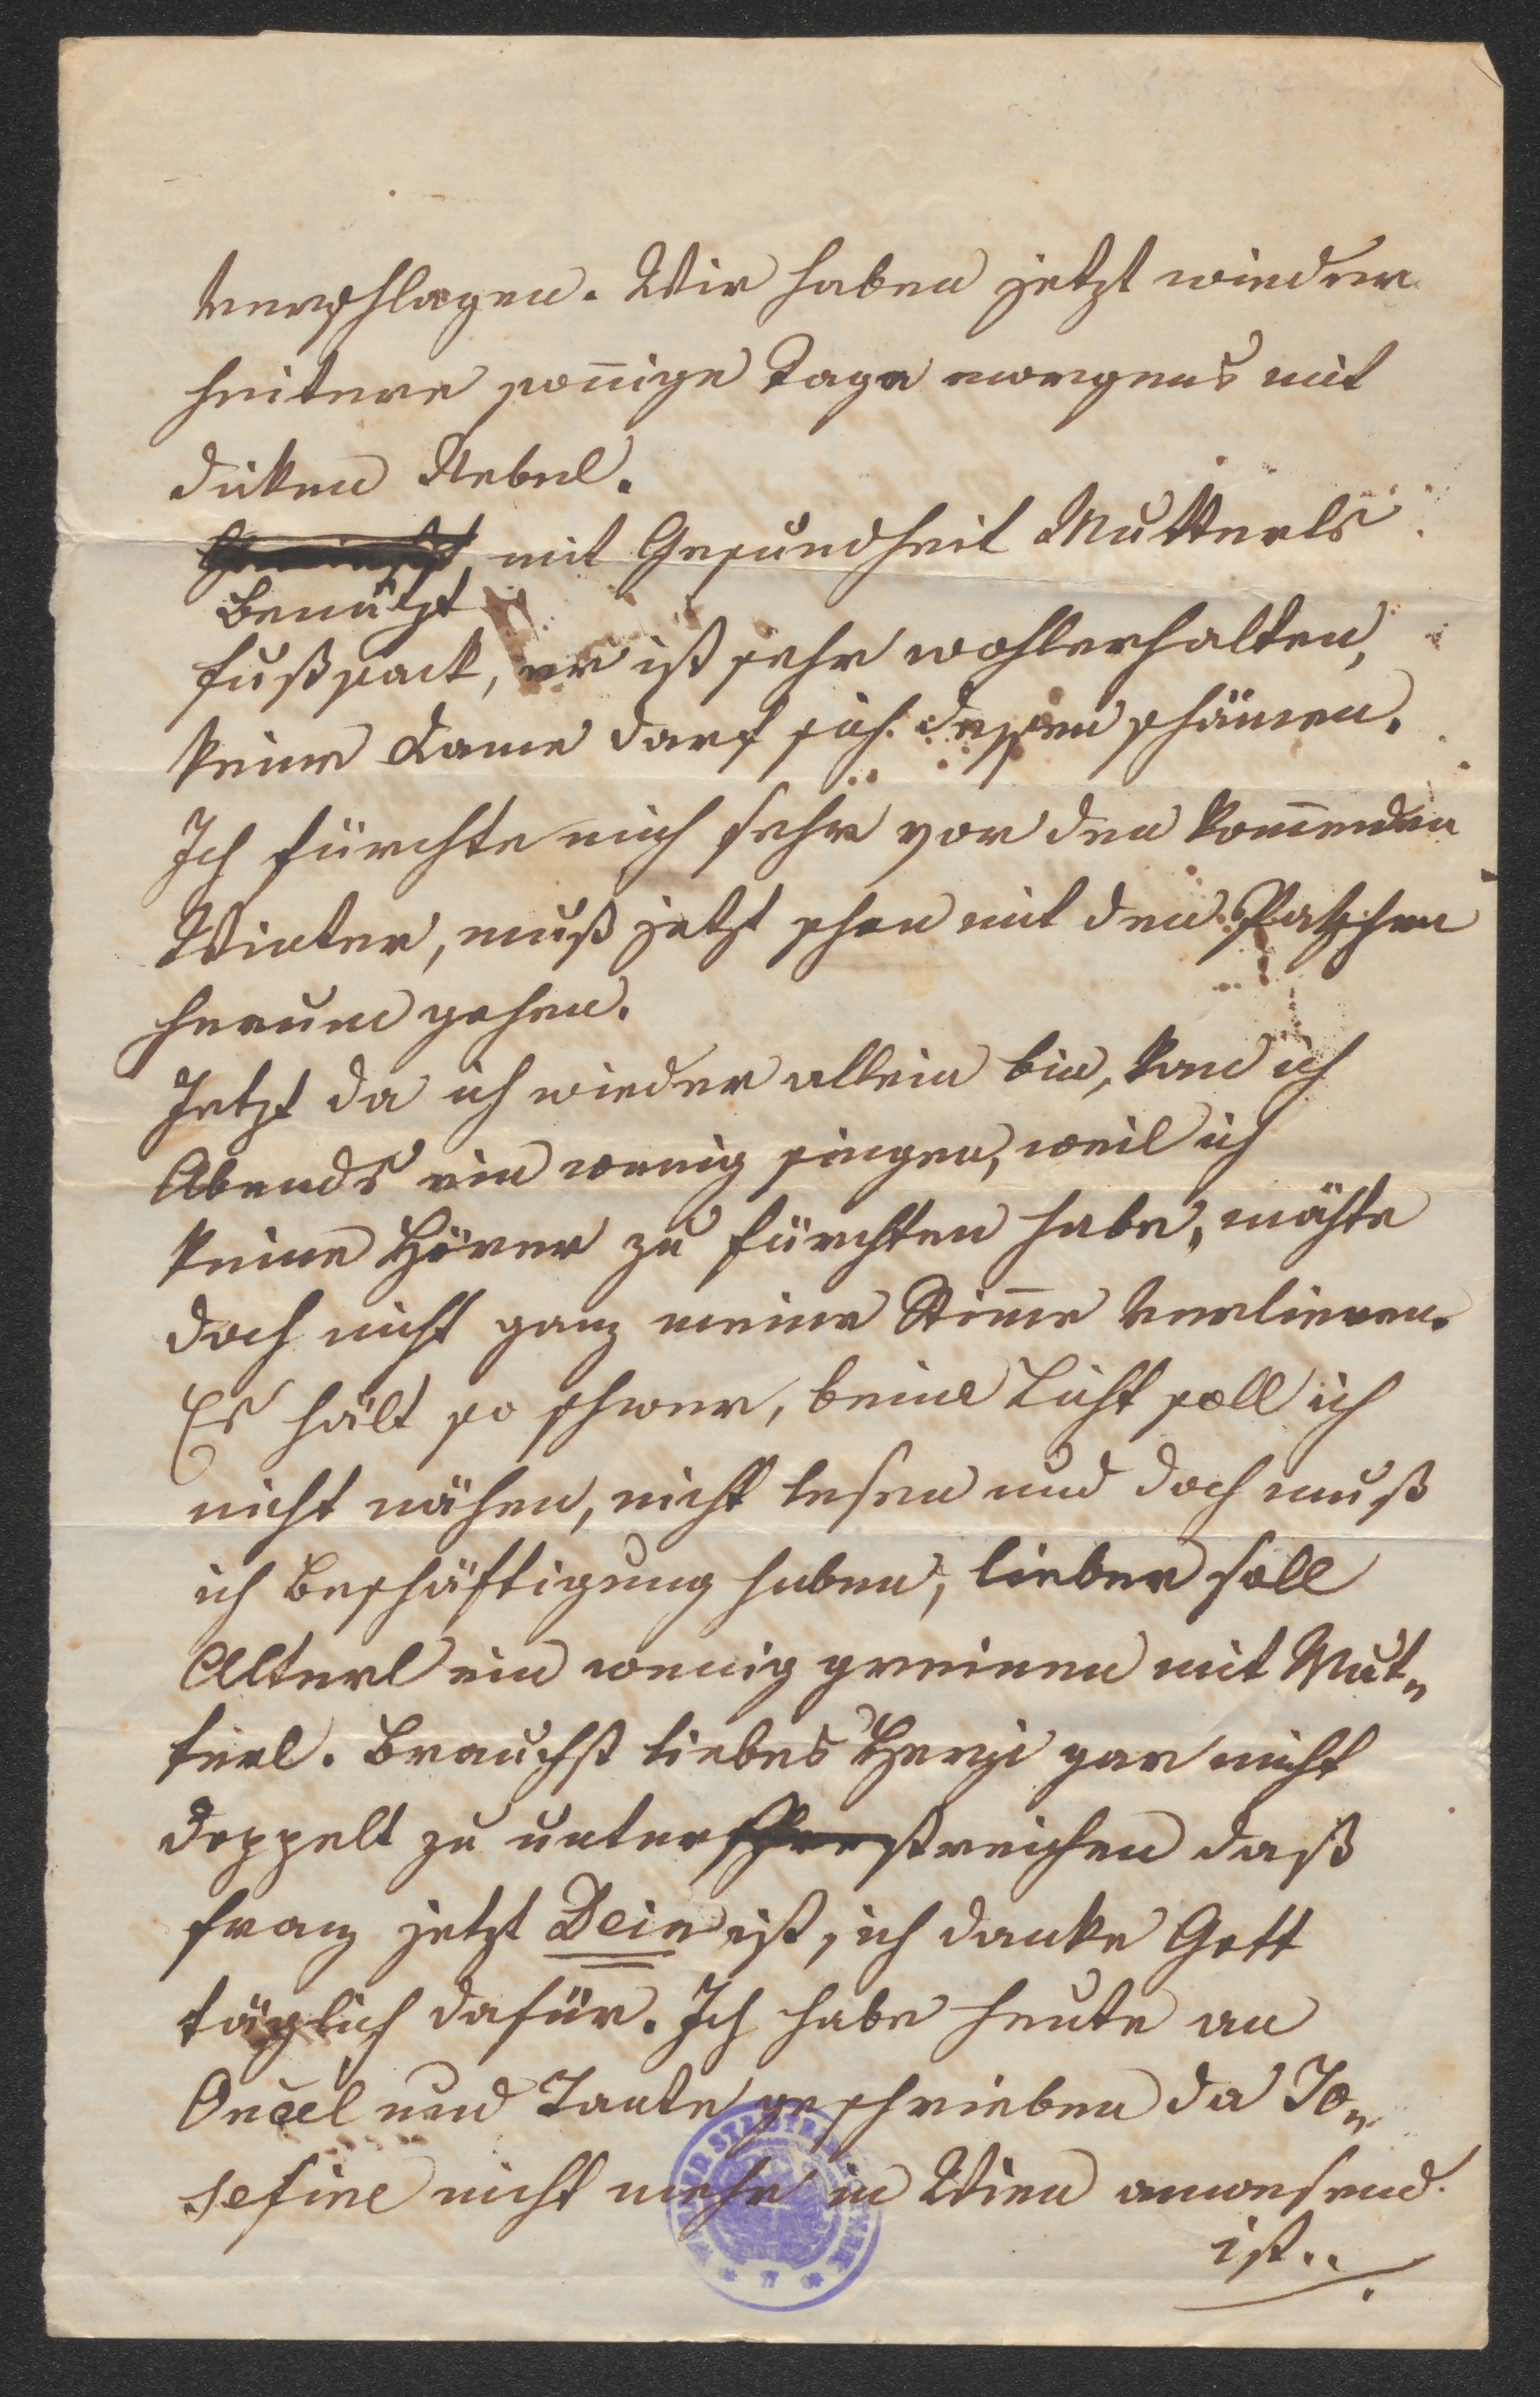 verschlagen. Wir haben jetzt wieder
heitere son̄ige Tage morgens mit
diken Nebel.
mit Gesundheit Mutterls
Benützt
Fußsack, er ist sehr wohlerhalten,
keine Dame darf sich dessen schämen.
Ich fürchte mich sehr vor den kom̄enden
Winter, muß jetzt schon mit den Patschen
herum gehen.
Jetzt da ich wieder allein bin, kan ich
Abends ein wenig singen, weil ich
keine Hörer zu fürchten habe, möchte
doch nicht ganz meine Stim̄e verlieren.
Es hält so schwer, beim Licht soll ich
nicht nähen, nicht lesen und doch muß
ich Beschäftigung haben, lieber soll
Alterl ein wenig greinen mit Mut„
terl. Brauchst liebes Herzi gar nicht
doppelt zu unterstreichen daß
Franz jetzt Dein ist, ich danke Gott
täglich dafür. Ich habe heute an
OnCel und Tante geschrieben da Jo„
sefine nicht mehr in Wien anwesend
ist..